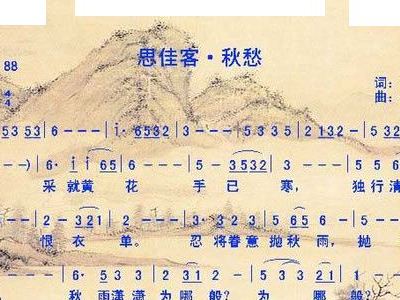 思佳客·秋愁
88
4
4
词:
曲:
53 53 | 6 - - - | i· 6532 | 3 - - - | 3 - 535 | 2 132 - | 5 32
- - -) | 6· i i 65 | 6 - - - | 5 - 3532 | 3 - - - | 5 5
采 就黄 花 手 已 寒, 独 行 清
2 - 321 | 2 - - - | 3· 2 321 | 3 5 65 6 | 5 -
恨 衣 单。 忍 将眷 意 抛秋 雨, 抛
| 6· 5 35 | 2 321 | - - - | 5 - - - |
秋 雨潇 潇 为 哪 般? 为 哪 般?